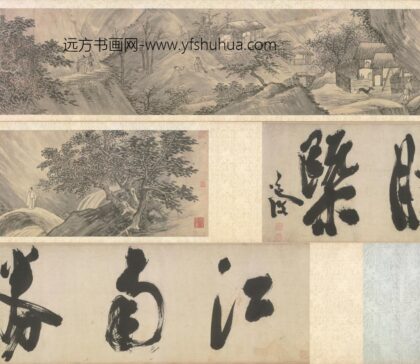 远方书画网-www.yfshuhua.com
江南勝槩